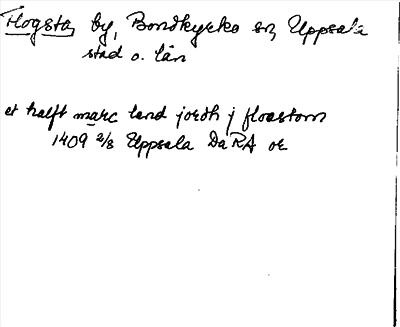 Flogsta, by, Bondkyrko sn, Uppsala
stad o. län
et halft marc land jordh j floastom
1409 2/8 Uppsala DaRA or